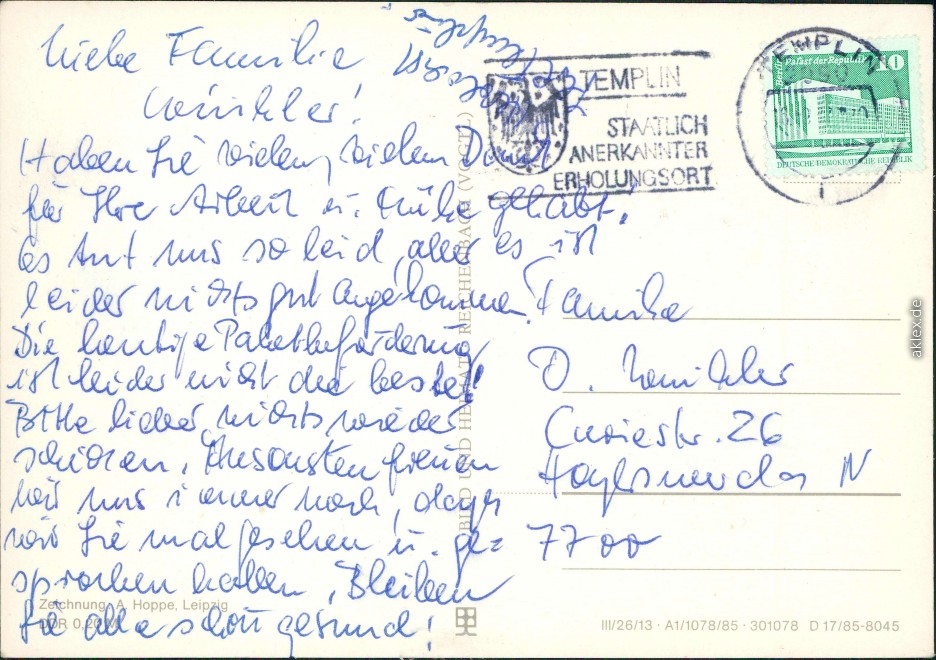 Liebe Familie
Winkler!
Haben Sie vielen, vielen Dank
für Ihre Arbeit u. Mühe gehabt.
es tut uns so leid, aber es ist
leider nichts gut angekommen.
Die heutige Paketbeförderung
ist leider nicht die beste!
Bitte lieber nichts wieder
schicken. Ansonsten freuen
wir uns immer noch, dass
wir Sie mal gesehen u. ge=
sprochen haben. Bleiben
Sie alle schön gesund!
Zeichnung: A. Hoppe, Leipzig
DDR 0,20 M
BILD UND HEIMAT REICHENBACH (VOGTL)
TEMPLIN
STAATLICH
ANERKANNTER
ERHOLUNGSORT
TEMPLIN
Berlin, Palast der Republik
10
DEUTSCHE DEMOKRATISCHE REPUBLIK
Familie
D. Winkler
Curiestr. 26
Hoyerswerda N
7700
III/26/13 · A1/1078/85 · 301078 D 17/85-8045
aklex.de